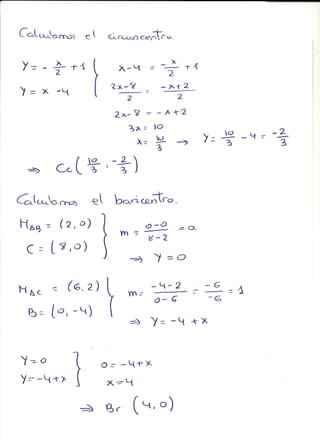 Calculamos el circuncentro.
y = - x/2 + 1 } x-4 = -x/2 + 1
y = x - 4 2x-8/2 = -x+2/2
2x - 8 = -x+2
3x = 10
x = 10/3 → y = 10/3 - 4 = -2/3
⇒ Cc(10/3, -2/3)
Calculamos el baricentro.
M_AB = (2,0) } m = 0-0/8-2 = 0.
C = (8,0) ⇒ y = 0
M_AC = (6,2) } m = -4-2/0-6 = -6/-6 = 1
B = (0,-4) ⇒ y = -4 + x
y = 0 } 0 = -4+x
y = -4+x x = 4
⇒ Br (4,0)